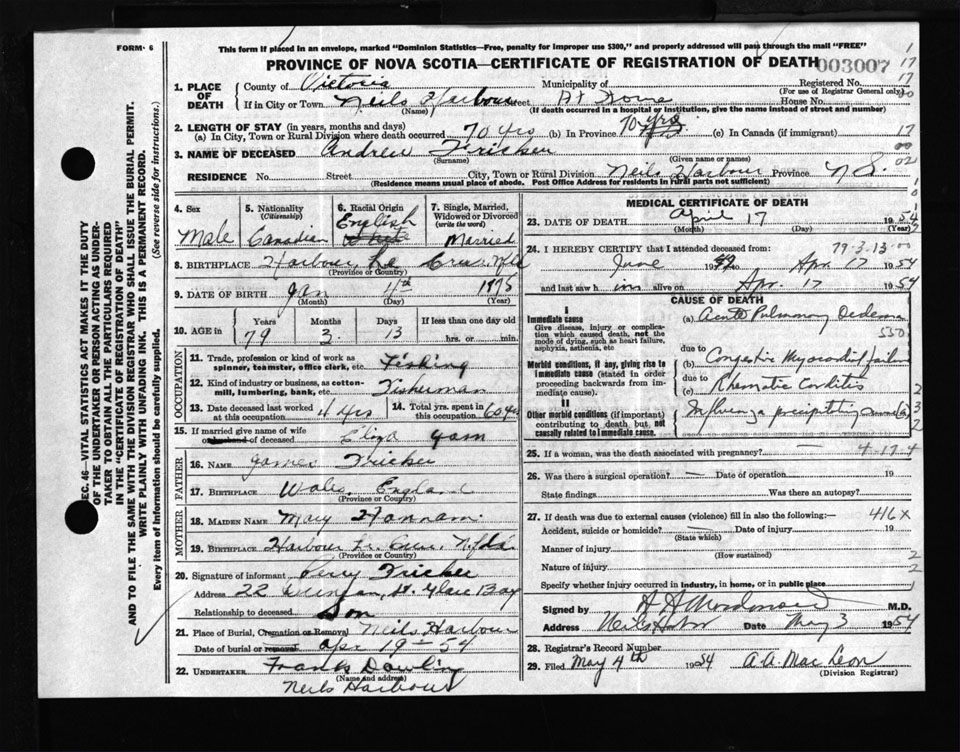 FORM 6
This form if placed in an envelope, marked "Dominion Statistics—Free, penalty for improper use $300," and properly addressed will pass through the mail "FREE"
PROVINCE OF NOVA SCOTIA—CERTIFICATE OF REGISTRATION OF DEATH
003007
SEC. 46—VITAL STATISTICS ACT MAKES IT THE DUTY
OF THE UNDERTAKER OR PERSON ACTING AS UNDER-
TAKER TO OBTAIN ALL THE PARTICULARS REQUIRED
IN THE "CERTIFICATE OF REGISTRATION OF DEATH"
AND TO FILE THE SAME WITH THE DIVISION REGISTRAR WHO SHALL ISSUE THE BURIAL PERMIT.
WRITE PLAINLY WITH UNFADING INK. THIS IS A PERMANENT RECORD.
Every item of information should be carefully supplied. (See reverse side for instructions.)
1. PLACE OF DEATH County of Victoria Municipality of Registered No.
(For use of Registrar General only)
If in City or Town Neils Harbour Street At Home House No.
(Name) (If death occurred in a hospital or institution, give the name instead of street and number)
2. LENGTH OF STAY (in years, months and days)
(a) In City, Town or Rural Division where death occurred 70 yrs (b) In Province 70 yrs (c) In Canada (if immigrant)
3. NAME OF DECEASED Andrew Fricker
(Surname) (Given name or names)
RESIDENCE No. Street City, Town or Rural Division Neils Harbour Province N.S.
(Residence means usual place of abode. Post Office Address for residents in rural parts not sufficient)
4. Sex Male
5. Nationality (Citizenship) Canadian
6. Racial Origin English
7. Single, Married, Widowed or Divorced (write the word) Married
8. BIRTHPLACE Harbour Le Cruse Nfld
(Province or Country)
9. DATE OF BIRTH Jan 4th 1875
(Month) (Day) (Year)
10. AGE in Years 79 Months 3 Days 13 If less than one day old hrs. or min.
OCCUPATION
11. Trade, profession or kind of work as spinner, teamster, office clerk, etc. Fishing
12. Kind of industry or business, as cotton-mill, lumbering, bank, etc. Fisherman
13. Date deceased last worked at this occupation 4 yrs 14. Total yrs. spent in this occupation 60 yrs
15. If married give name of wife or husband of deceased Eliza
FATHER
16. NAME James Fricker
17. BIRTHPLACE England
(Province or Country)
MOTHER
18. MAIDEN NAME Mary Hannam
19. BIRTHPLACE Harbour Le Nfld.
(Province or Country)
20. Signature of informant Percy Fricker
Address 22 St. Glace Bay
Relationship to deceased Son
21. Place of Burial, Cremation or Removal Neils Harbour
Date of burial or removal Apr 19 - 54
22. UNDERTAKER Frank Dowling
(Name and address)
Neils Harbour
MEDICAL CERTIFICATE OF DEATH
23. DATE OF DEATH April 17 1954
(Month) (Day)
24. I HEREBY CERTIFY that I attended deceased from: 79-3-13-00
June 19 to Apr. 17 1954
and last saw h im alive on Apr. 17 1954
CAUSE OF DEATH
I
Immediate cause
Give disease, injury or complication which caused death, not the mode of dying, such as heart failure, asphyxia, asthenia, etc
(a) Acute Pulmonary Oedema
due to
Morbid conditions, if any, giving rise to immediate cause (stated in order proceeding backwards from immediate cause).
(b) Congestive Myocardial failure
due to
(c) Rheumatic Carditis
II
Other morbid conditions (if important) contributing to death but not causally related to immediate cause.
Influenza precipitating
25. If a woman, was the death associated with pregnancy? 4-17-4
26. Was there a surgical operation? — Date of operation 19
State findings Was there an autopsy?
27. If death was due to external causes (violence) fill in also the following:— 416X
Accident, suicide or homicide? Date of injury 19
(State which)
Manner of injury
(How sustained)
Nature of injury
Specify whether injury occurred in industry, in home, or in public place
Signed by M.D.
Address Neils Hbr Date May 3 1954
28. Registrar's Record Number
29. Filed May 4th 1954 A.A. MacLeon
(Division Registrar)